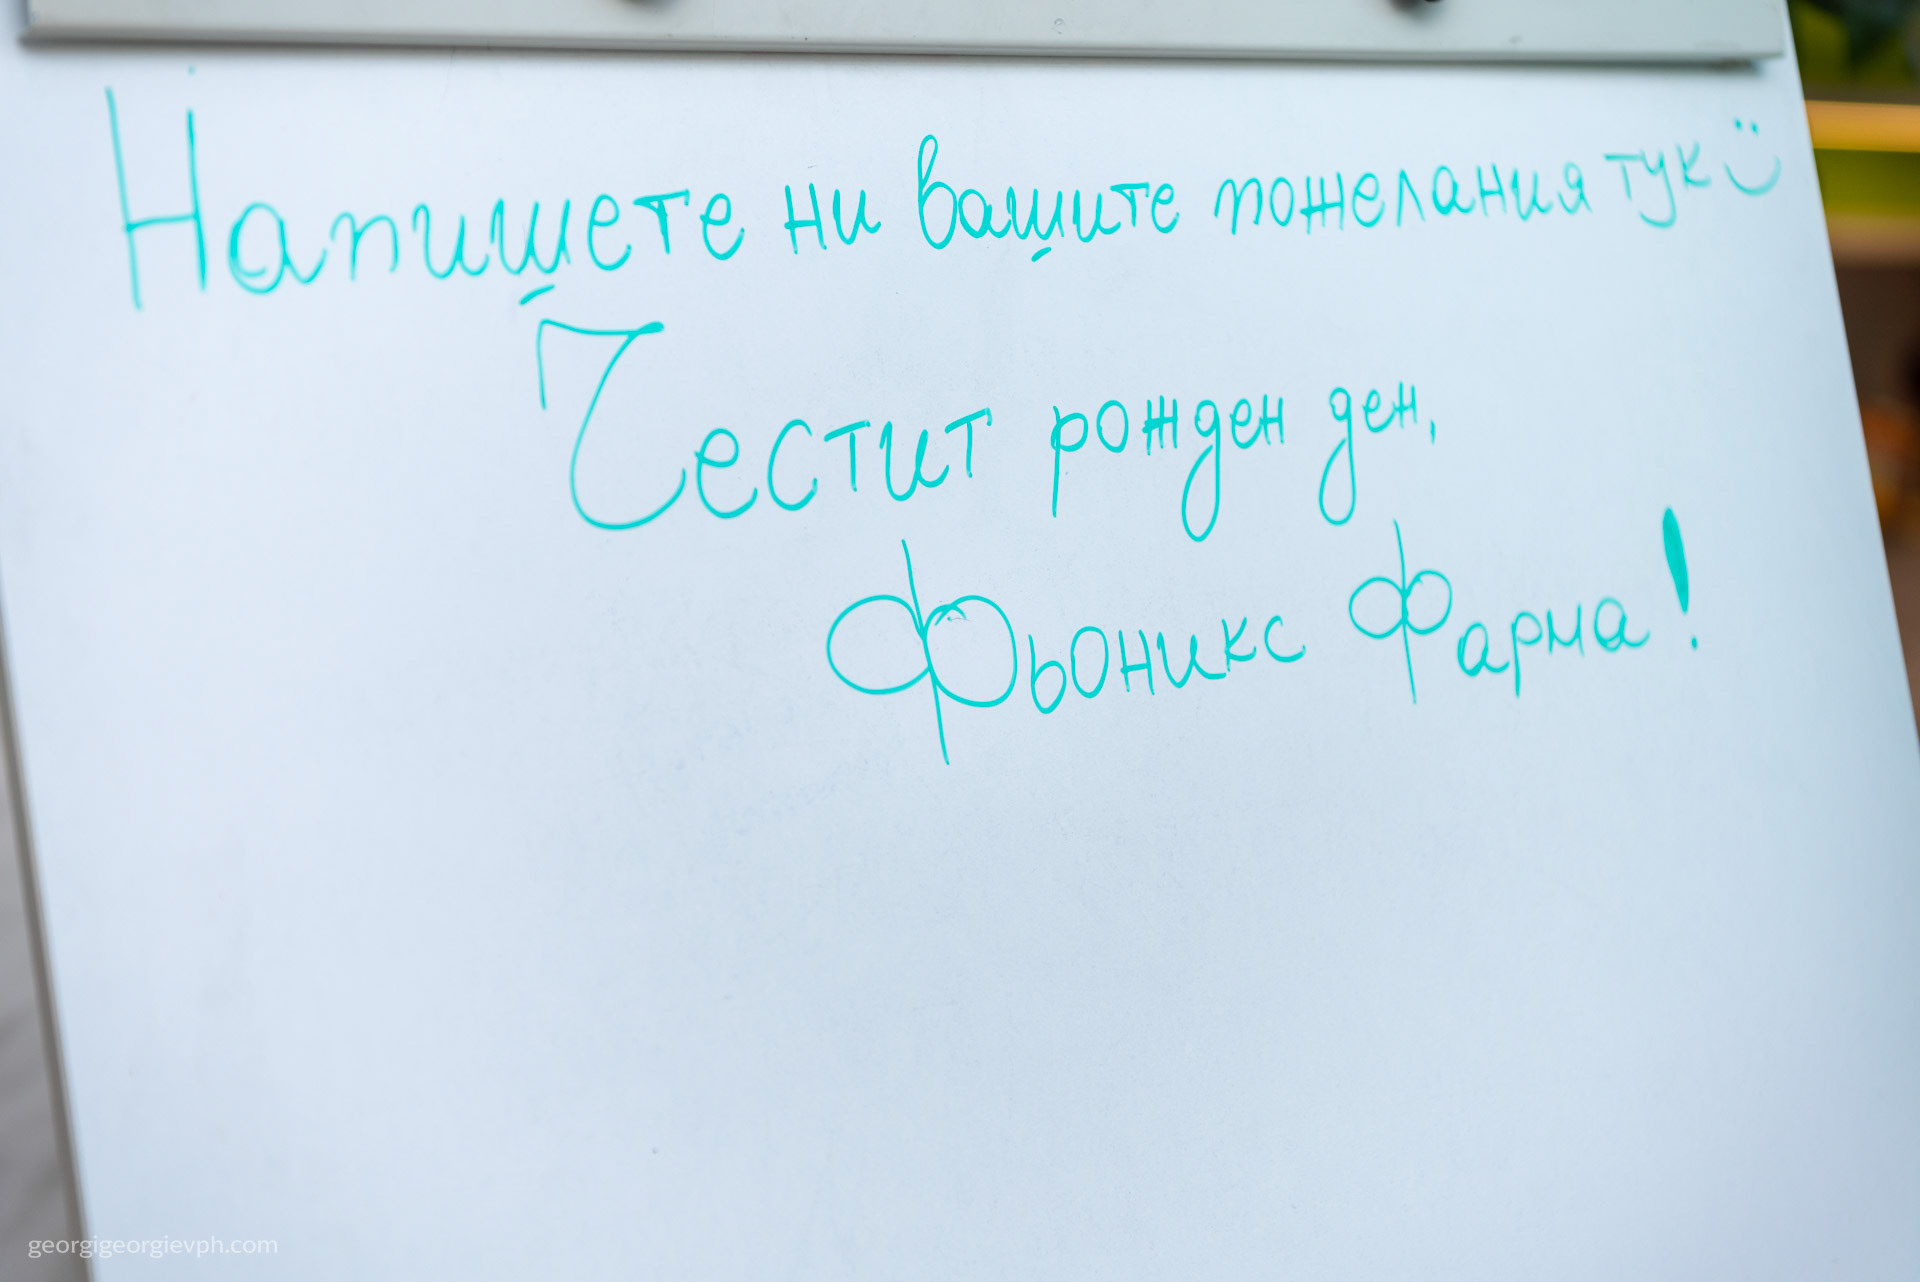 Напишете ни вашите пожелания тук :)
Честит рожден ден,
Фьоникс Фарма!
georgigeorgievph.com